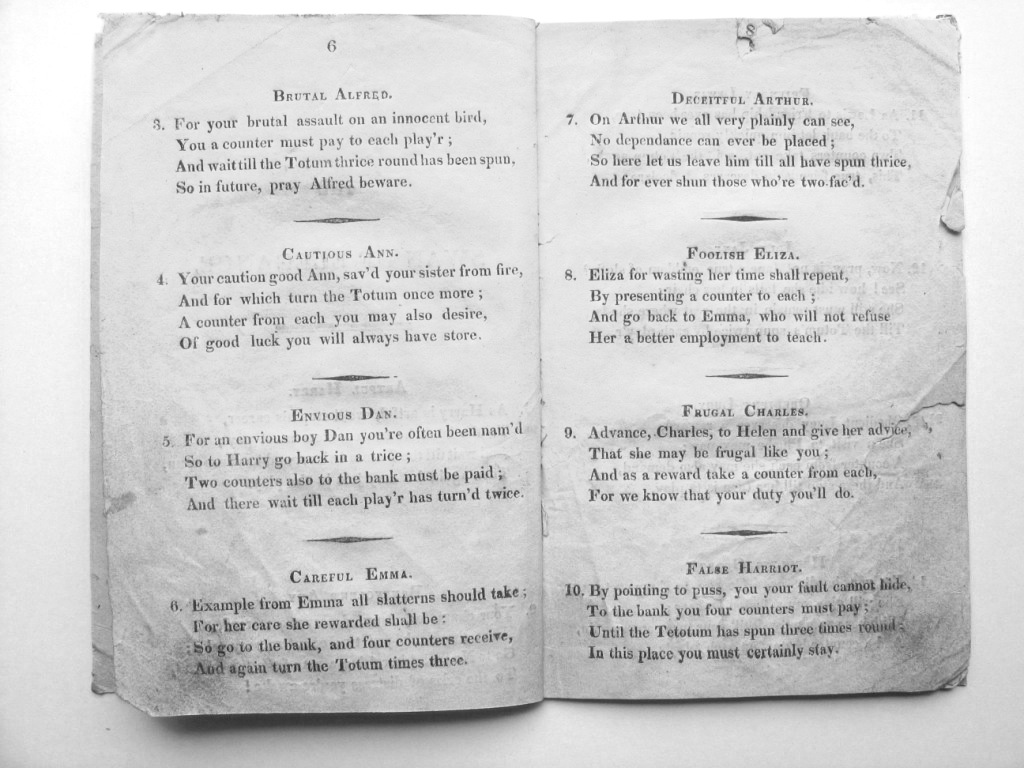 6
BRUTAL ALFRED.
3. For your brutal assault on an innocent bird,
You a counter must pay to each play'r ;
And wait till the Totum thrice round has been spun,
So in future, pray Alfred beware.
CAUTIOUS ANN.
4. Your caution good Ann, sav'd your sister from fire,
And for which turn the Totum once more ;
A counter from each you may also desire,
Of good luck you will always have store.
ENVIOUS DAN.
5. For an envious boy Dan you're often been nam'd
So to Harry go back in a trice ;
Two counters also to the bank must be paid ;
And there wait till each play'r has turn'd twice.
CAREFUL EMMA.
6. Example from Emma all slatterns should take ;
For her care she rewarded shall be :
So go to the bank, and four counters receive,
And again turn the Totum times three.
8
DECEITFUL ARTHUR.
7. On Arthur we all very plainly can see,
No dependance can ever be placed ;
So here let us leave him till all have spun thrice,
And for ever shun those who're two-fac'd.
FOOLISH ELIZA.
8. Eliza for wasting her time shall repent,
By presenting a counter to each ;
And go back to Emma, who will not refuse
Her a better employment to teach.
FRUGAL CHARLES.
9. Advance, Charles, to Helen and give her advice,
That she may be frugal like you ;
And as a reward take a counter from each,
For we know that your duty you'll do.
FALSE HARRIOT.
10. By pointing to puss, you your fault cannot hide,
To the bank you four counters must pay ;
Until the Tetotum has spun three times round ;
In this place you must certainly stay.